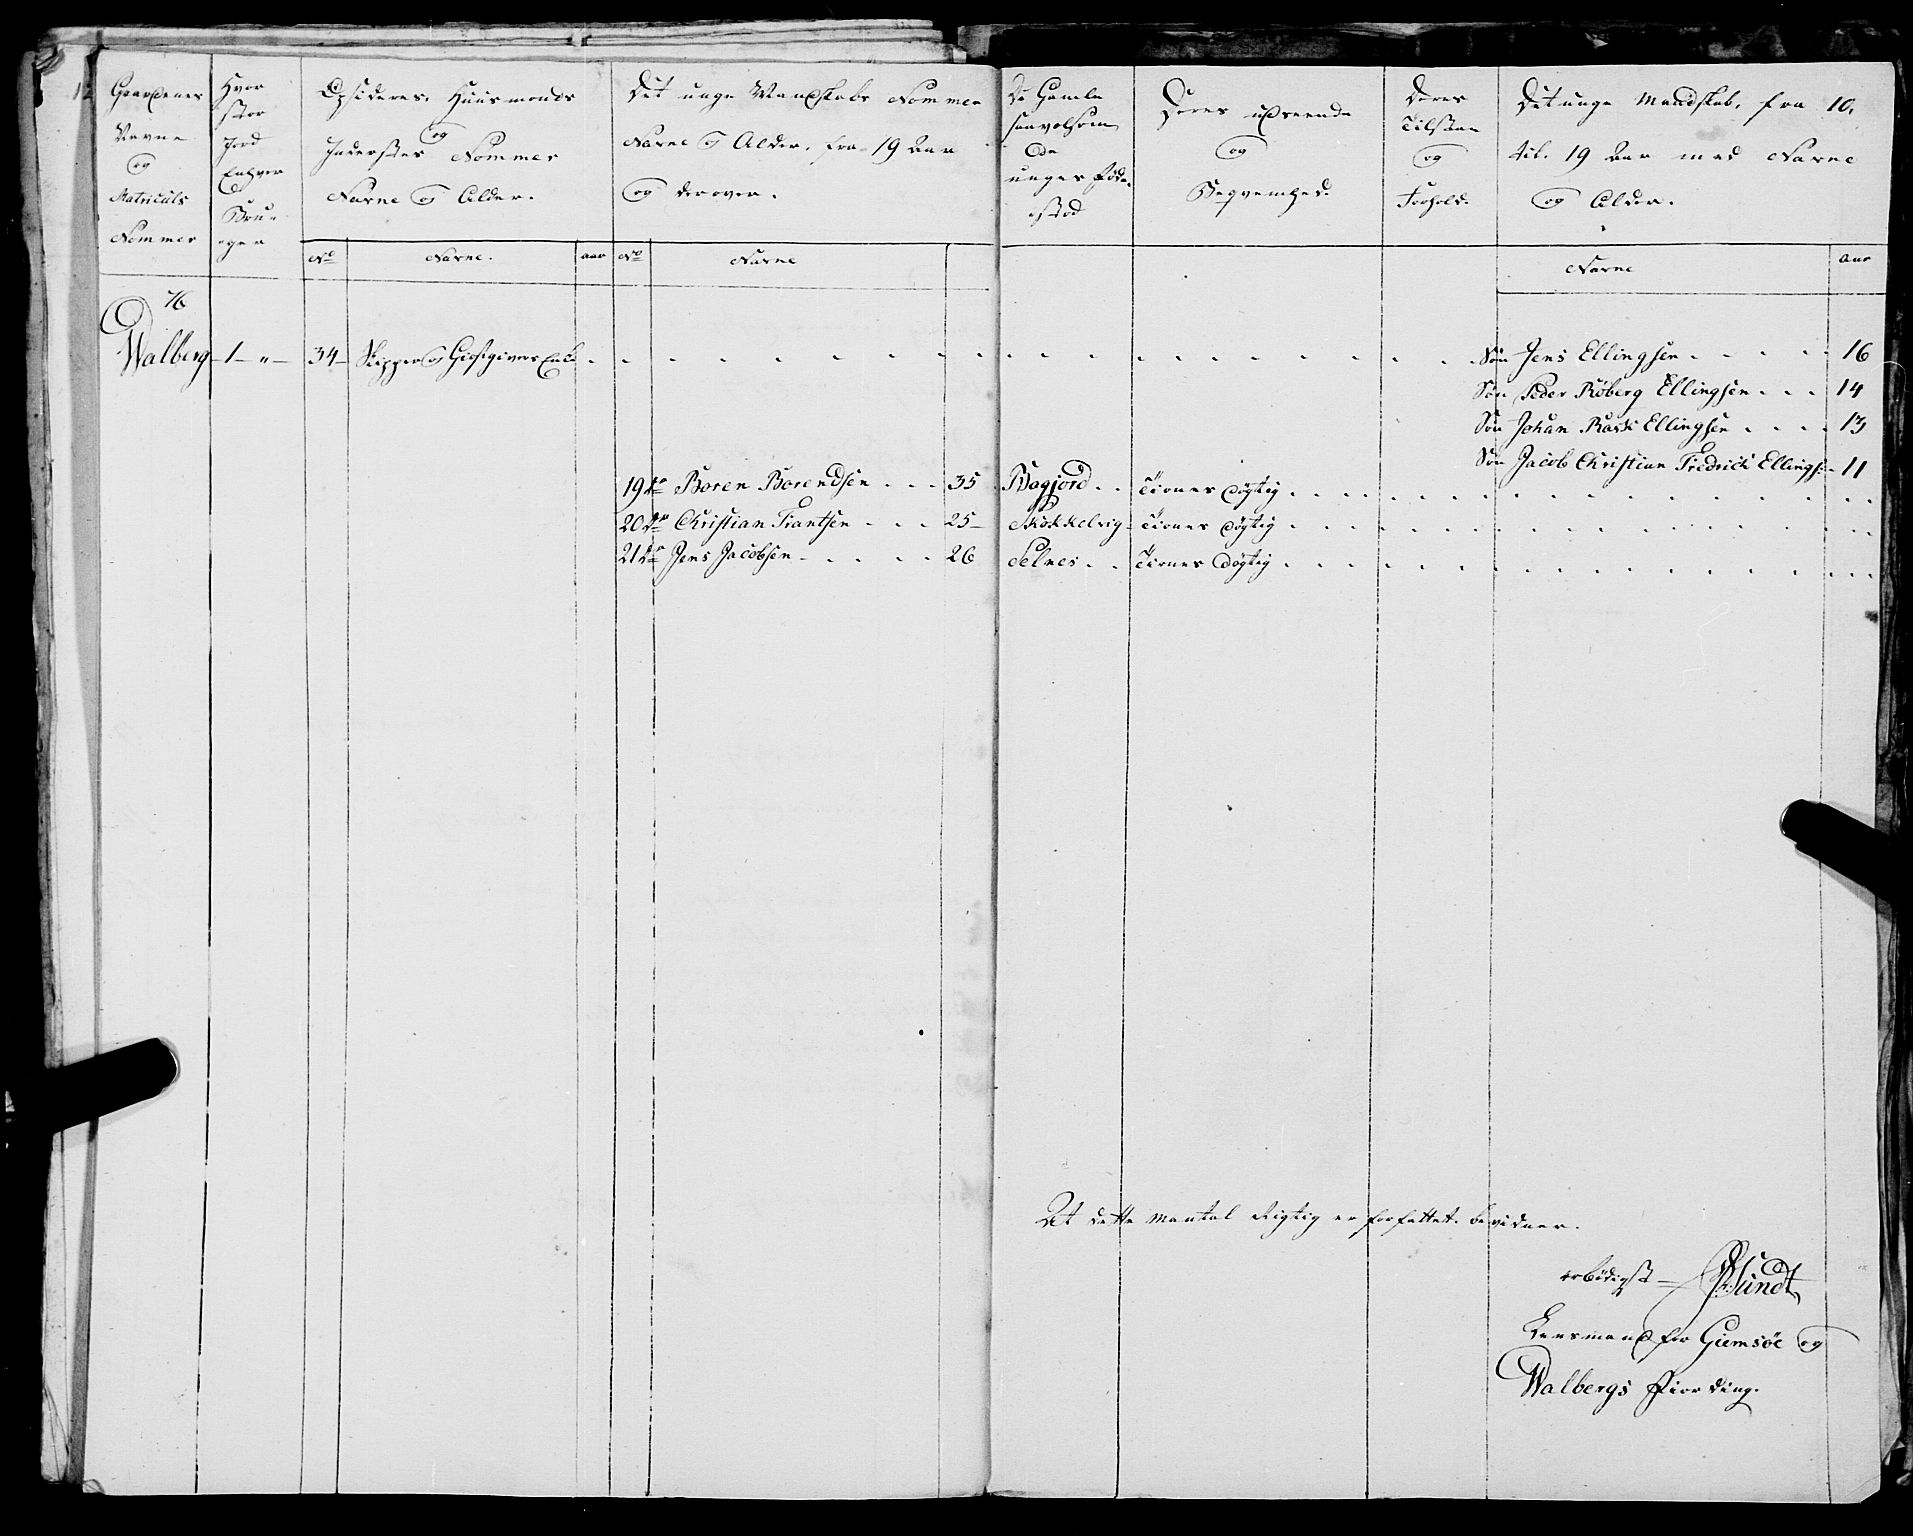 12
Gaardenes
Navne
og
Matriculs
Nommer
Hvor
stor
Jord
Enhver
Bru-
ger
Opsideres, Huusmænds
og
Inderster Nommer
Navne og Alder.
Det unge Mandskabs Nommer
Navne og Alder, fra 19 Aar
og derover.
De Gamle
saavelsom
de
unges Føde-
stæd
Deres udseende
og
Beqvemhed.
Deres
Tilstan
og
Forhold.
Det unge Mandskab, fra 10,
til 19 Aar med Navne
og Alder.
No Navne. aar No Navne
Navne Aar
76
Walberg 1 - " - 34 - Skipper og Giestgivers Enke Søn Jens Ellingsen 16
Søn Peder Røberg Ellingsen 14
Søn Johan Rask Ellingsen 13
Søn Jacob Christian Fredrich Ellings: 11
19de Boren Borendsen 35 Bagjord Tienes døgtig
20de Christian Frantsen 25 - Skokkelvig Tienes døgtig
21de Jens Jacobsen 26 Selnes Tienes døgtig
At dette Mantal Rigtig er forfattet bevidner.
erbødigst Sundt
Lensmand for Giemsøe og
Walbergs Fierding.